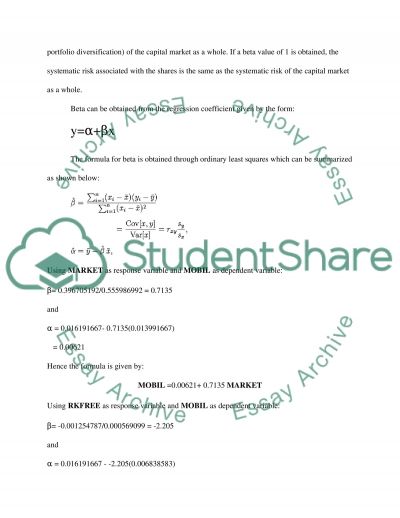 portfolio diversification) of the capital market as a whole. If a beta value of 1 is obtained, the
systematic risk associated with the shares is the same as the systematic risk of the capital market
as a whole.
Beta can be obtained from the regression coefficient given by the form:
y=α+βx
The formula for beta is obtained through ordinary least squares which can be summarized
as shown below:
β̂ = ∑ⁿᵢ₌₁(xᵢ − x̄)(yᵢ − ȳ) / ∑ⁿᵢ₌₁(xᵢ − x̄)²
= Cov[x, y] / Var[x] = rₓᵧ sᵧ/sₓ,
α̂ = ȳ − β̂ x̄,
StudentShare
Using MARKET as response variable and MOBIL as dependent variable:
β= 0.396705192/0.555986992 = 0.7135
and
α = 0.016191667- 0.7135(0.013991667)
= 0.00621
Hence the formula is given by:
MOBIL =0.00621+ 0.7135 MARKET
Using RKFREE as response variable and MOBIL as dependent variable:
β= -0.001254787/0.000569099 = -2.205
and
α = 0.016191667 - -2.205(0.006838583)